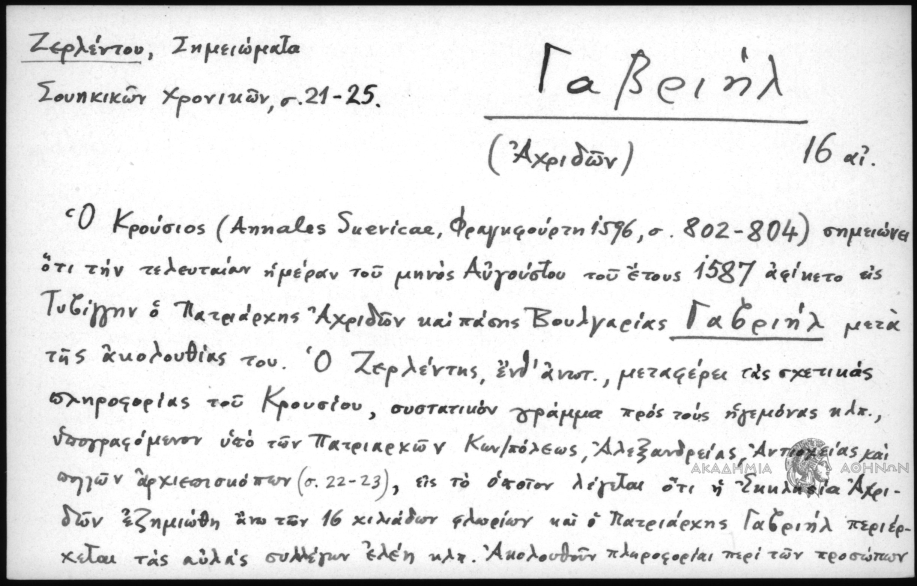 Ζερλέντου, Σημειώματα
Σουηκικῶν χρονικῶν, σ. 21-25.
Γαβριήλ
(Ἀχριδῶν) 16 αἰ.
Ὁ Κρούσιος (Annales Suevicae, Φραγκφούρτη 1596, σ. 802-804) σημειώνει
ὅτι τήν τελευταίαν ἡμέραν τοῦ μηνός Αὐγούστου τοῦ ἔτους 1587 ἀφίκετο εἰς
Τυβίγγην ὁ Πατριάρχης Ἀχριδῶν καί πάσης Βουλγαρίας Γαβριήλ μετά
τῆς ἀκολουθίας του. Ὁ Ζερλέντης, ἔνθ' ἀνωτ., μεταφέρει τάς σχετικάς
πληροφορίας τοῦ Κρουσίου, συστατικόν γράμμα πρός τούς ἡγεμόνας κλπ.,
ὑπογραφόμενον ὑπό τῶν Πατριαρχῶν Κων/πόλεως, Ἀλεξανδρείας, Ἀντιοχείας καί
ΑΚΑΔΗΜΙΑ ΑΘΗΝΩΝ
πολλῶν ἀρχιεπισκόπων (σ. 22-23), εἰς τό ὁποῖον λέγεται ὅτι ἡ Ἐκκλησία Ἀχρι-
δῶν ἐζημιώθη ἄνω τῶν 16 χιλιάδων φλωρίων καί ὁ Πατριάρχης Γαβριήλ περιέρ-
χεται τάς αὐλάς συλλέγων ἐλέη κλπ. Ἀκολουθοῦν πληροφορίαι περί τῶν προσώπων